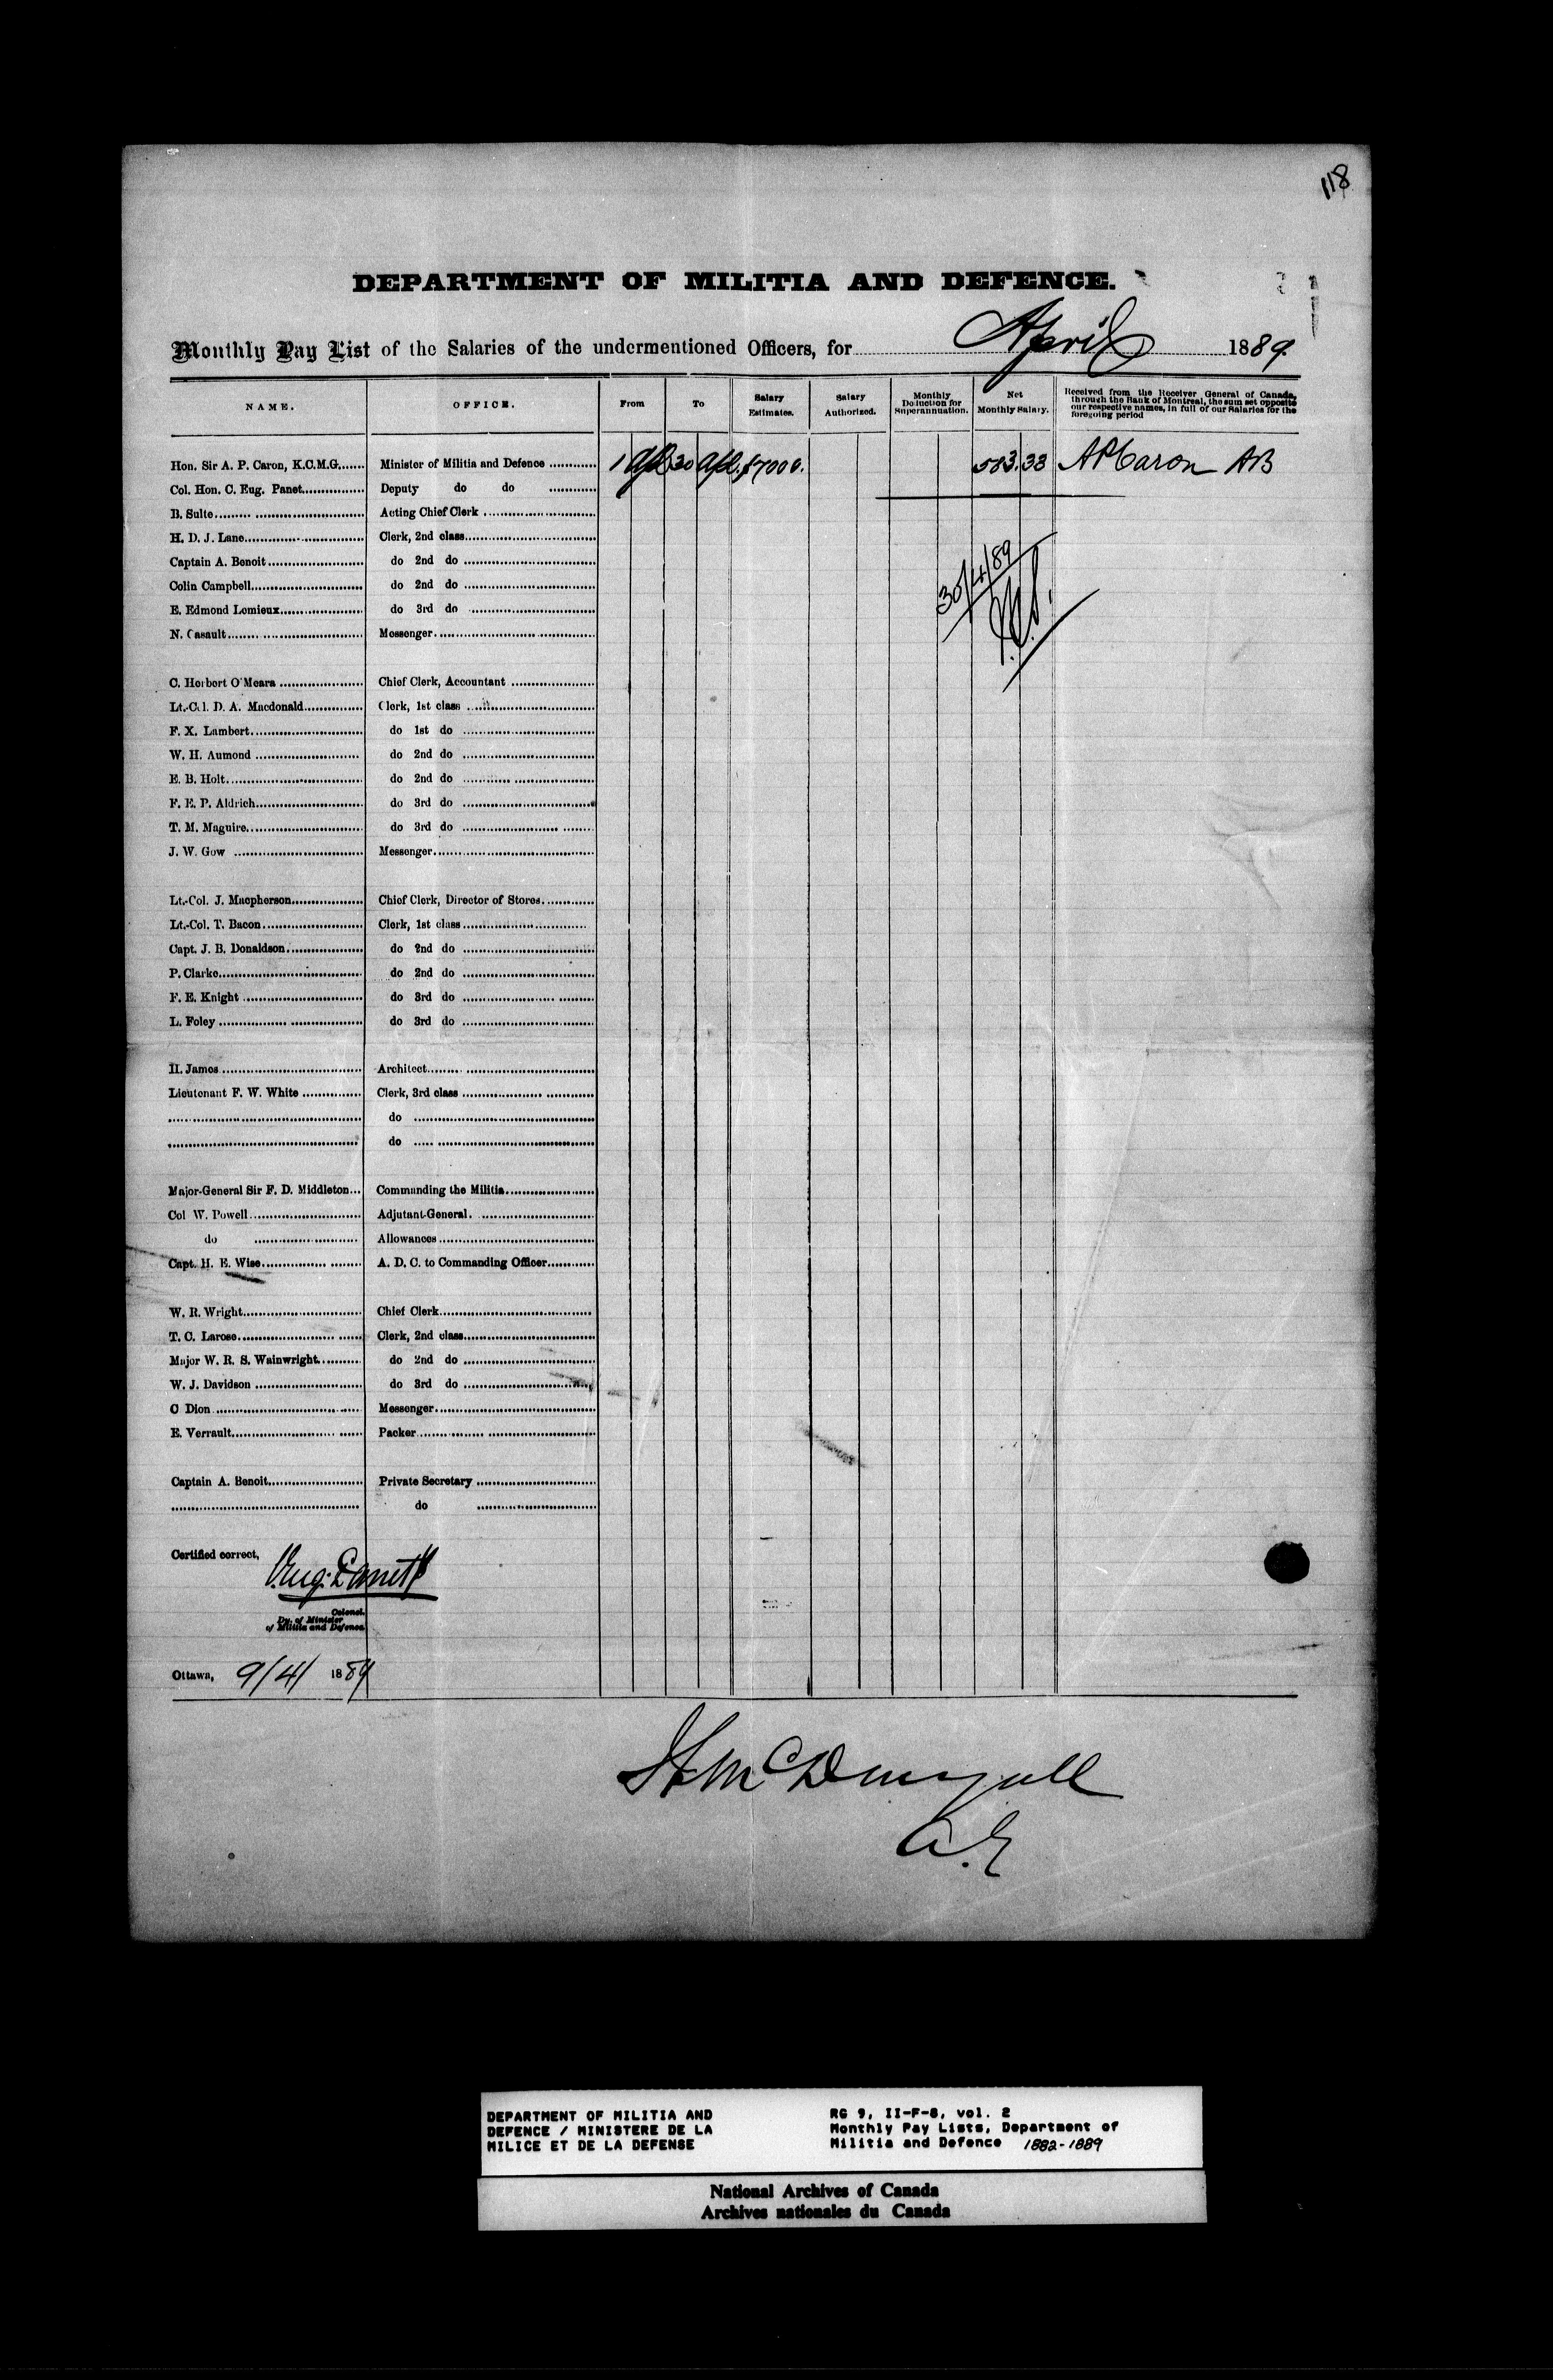 118
DEPARTMENT OF MILITIA AND DEFENCE.
Monthly Pay List of the Salaries of the undermentioned Officers, for April 1889.
NAME. OFFICE. From To Salary Estimates. Salary Authorized. Monthly Deduction for Superannuation. Net Monthly Salary. Received from the Receiver General of Canada, through the Bank of Montreal, the sum set opposite our respective names, in full of our Salaries for the foregoing period
Hon. Sir A. P. Caron, K.C.M.G. Minister of Militia and Defence 1 Apl 30 Apl. $7000. 583.33 APCaron AB
Col. Hon. C. Eug. Panet Deputy do do
B. Sulte Acting Chief Clerk
H. D. J. Lane Clerk, 2nd class
Captain A. Benoit do 2nd do
30/4/89
Colin Campbell do 2nd do
E. Edmond Lemieux do 3rd do
N. Casault Messenger
C. Herbert O'Meara Chief Clerk, Accountant
Lt.-Col. D. A. Macdonald Clerk, 1st class
F. X. Lambert do 1st do
W. H. Aumond do 2nd do
E. B. Holt do 2nd do
F. E. P. Aldrich do 3rd do
T. M. Maguire do 3rd do
J. W. Gow Messenger
Lt.-Col. J. Macpherson Chief Clerk, Director of Stores
Lt.-Col. T. Bacon Clerk, 1st class
Capt. J. B. Donaldson do 2nd do
P. Clarke do 2nd do
F. E. Knight do 3rd do
L. Foley do 3rd do
H. James Architect
Lieutenant F. W. White Clerk, 3rd class
do
do
Major-General Sir F. D. Middleton Commanding the Militia
Col W. Powell Adjutant-General.
do Allowances
Capt. H. E. Wise A. D. C. to Commanding Officer
W. R. Wright Chief Clerk
T. C. Larose Clerk, 2nd class
Major W. R. S. Wainwright do 2nd do
W. J. Davidson do 3rd do
C Dion Messenger
E. Verrault Packer
Captain A. Benoit Private Secretary
do
Certified correct,
C. Eug. Panet
Colonel.
Dy. of Minister
of Militia and Defence
Ottawa, 9/4/ 1889
McDougall
A.G
DEPARTMENT OF MILITIA AND DEFENCE / MINISTERE DE LA MILICE ET DE LA DEFENSE
RG 9, II-F-8, vol. 2
Monthly Pay Lists, Department of
Militia and Defence 1882-1889
National Archives of Canada
Archives nationales du Canada